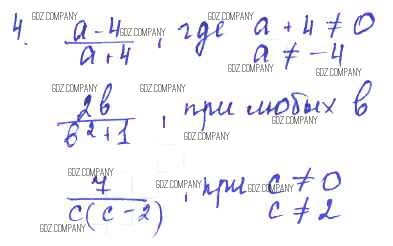 4. (a-4)/(a+4), где a + 4 ≠ 0
a ≠ -4
2b/(b²+1), при любых b
7/(c(c-2)), при c ≠ 0
c ≠ 2
GDZ.COMPANY
GDZ.COMPANY
GDZ.COMPANY
GDZ.COMPANY
GDZ.COMPANY
GDZ.COMPANY
GDZ.COMPANY
GDZ.COMPANY
GDZ.COMPANY
GDZ.COMPANY
GDZ.COMPANY
GDZ.COMPANY
GDZ.COMPANY
GDZ.COMPANY